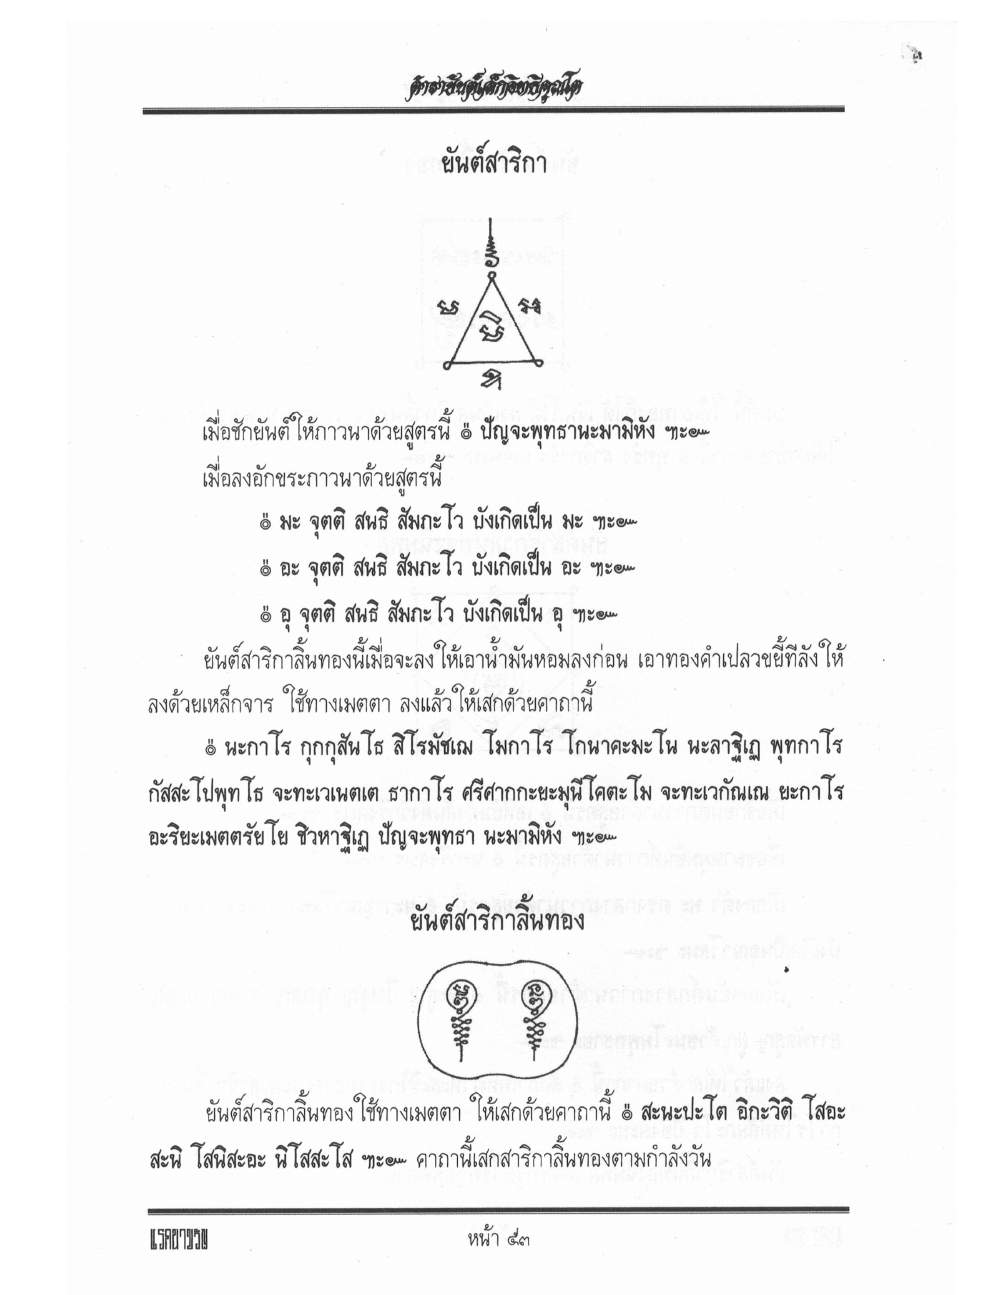 ยันต์สาริกา
เมื่อชักยันต์ให้ภาวนาด้วยสูตรนี้ ๏ ปัญจะพุทธานะมามิหัง ฯะ๛
เมื่อลงอักขระภาวนาด้วยสูตรนี้
๏ มะ จุตติ สนธิ สัมภะโว บังเกิดเป็น มะ ฯะ๛
๏ อะ จุตติ สนธิ สัมภะโว บังเกิดเป็น อะ ฯะ๛
๏ อุ จุตติ สนธิ สัมภะโว บังเกิดเป็น อุ ฯะ๛
ยันต์สาริกาลิ้นทองนี้เมื่อจะลงให้เอาน้ำมันหอมลงก่อน เอาทองคำเปลวขยี้ทีลังให้
ลงด้วยเหล็กจาร ใช้ทางเมตตา ลงแล้วให้เสกด้วยคาถานี้
๏ นะกาโร กุกกุสันโธ สิโรมัชเฌ โมกาโร โกนาคะมะโน นะลาฐิเฏ พุทกาโร
กัสสะโปพุทโธ จะทะเวเนตเต ธากาโร ศรีศากกะยะมุนีโคตะโม จะทะเวกัณเณ ยะกาโร
อะริยะเมตตรัยโย ชิวหาฐิเฏ ปัญจะพุทธา นะมามิหัง ฯะ๛
ยันต์สาริกาลิ้นทอง
ยันต์สาริกาลิ้นทองใช้ทางเมตตา ให้เสกด้วยคาถานี้ ๏ สะนะปะโต อิกะวิติ โสอะ
สะนิ โสนิสะอะ นิโสสะโส ฯะ๛ คาถานี้เสกสาริกาลิ้นทองตามกำลังวัน
หน้า ๕๓